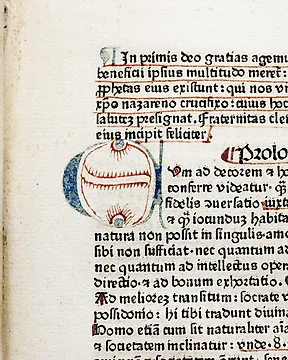 In primis deo gratias agemu
beneficii ipsius multitudo meret:
ꝓphetas eius existunt: qui nos vi
xp̄o nazareno crucifixo: cuius hoc
salutez presignat. Fraternitas cler
eius incipit feliciter
Prolo
Vm ad decorem z ho
conferre videatur. ꝙ
fidelis ↄuersatio iuxta
z ꝙ iocunduz habita
natura non possit in singulis: amo
sibi non sufficiat. net quantum ad
net quantum ad intellectus oper
directio. z ad bonum exhortatio.
Ad meliorez transitum: socrate
possidonio: hi tibi tradunt diuina
Homo etiā cum sit naturaliter aīa
z societatem inclinatur: vnde .8.